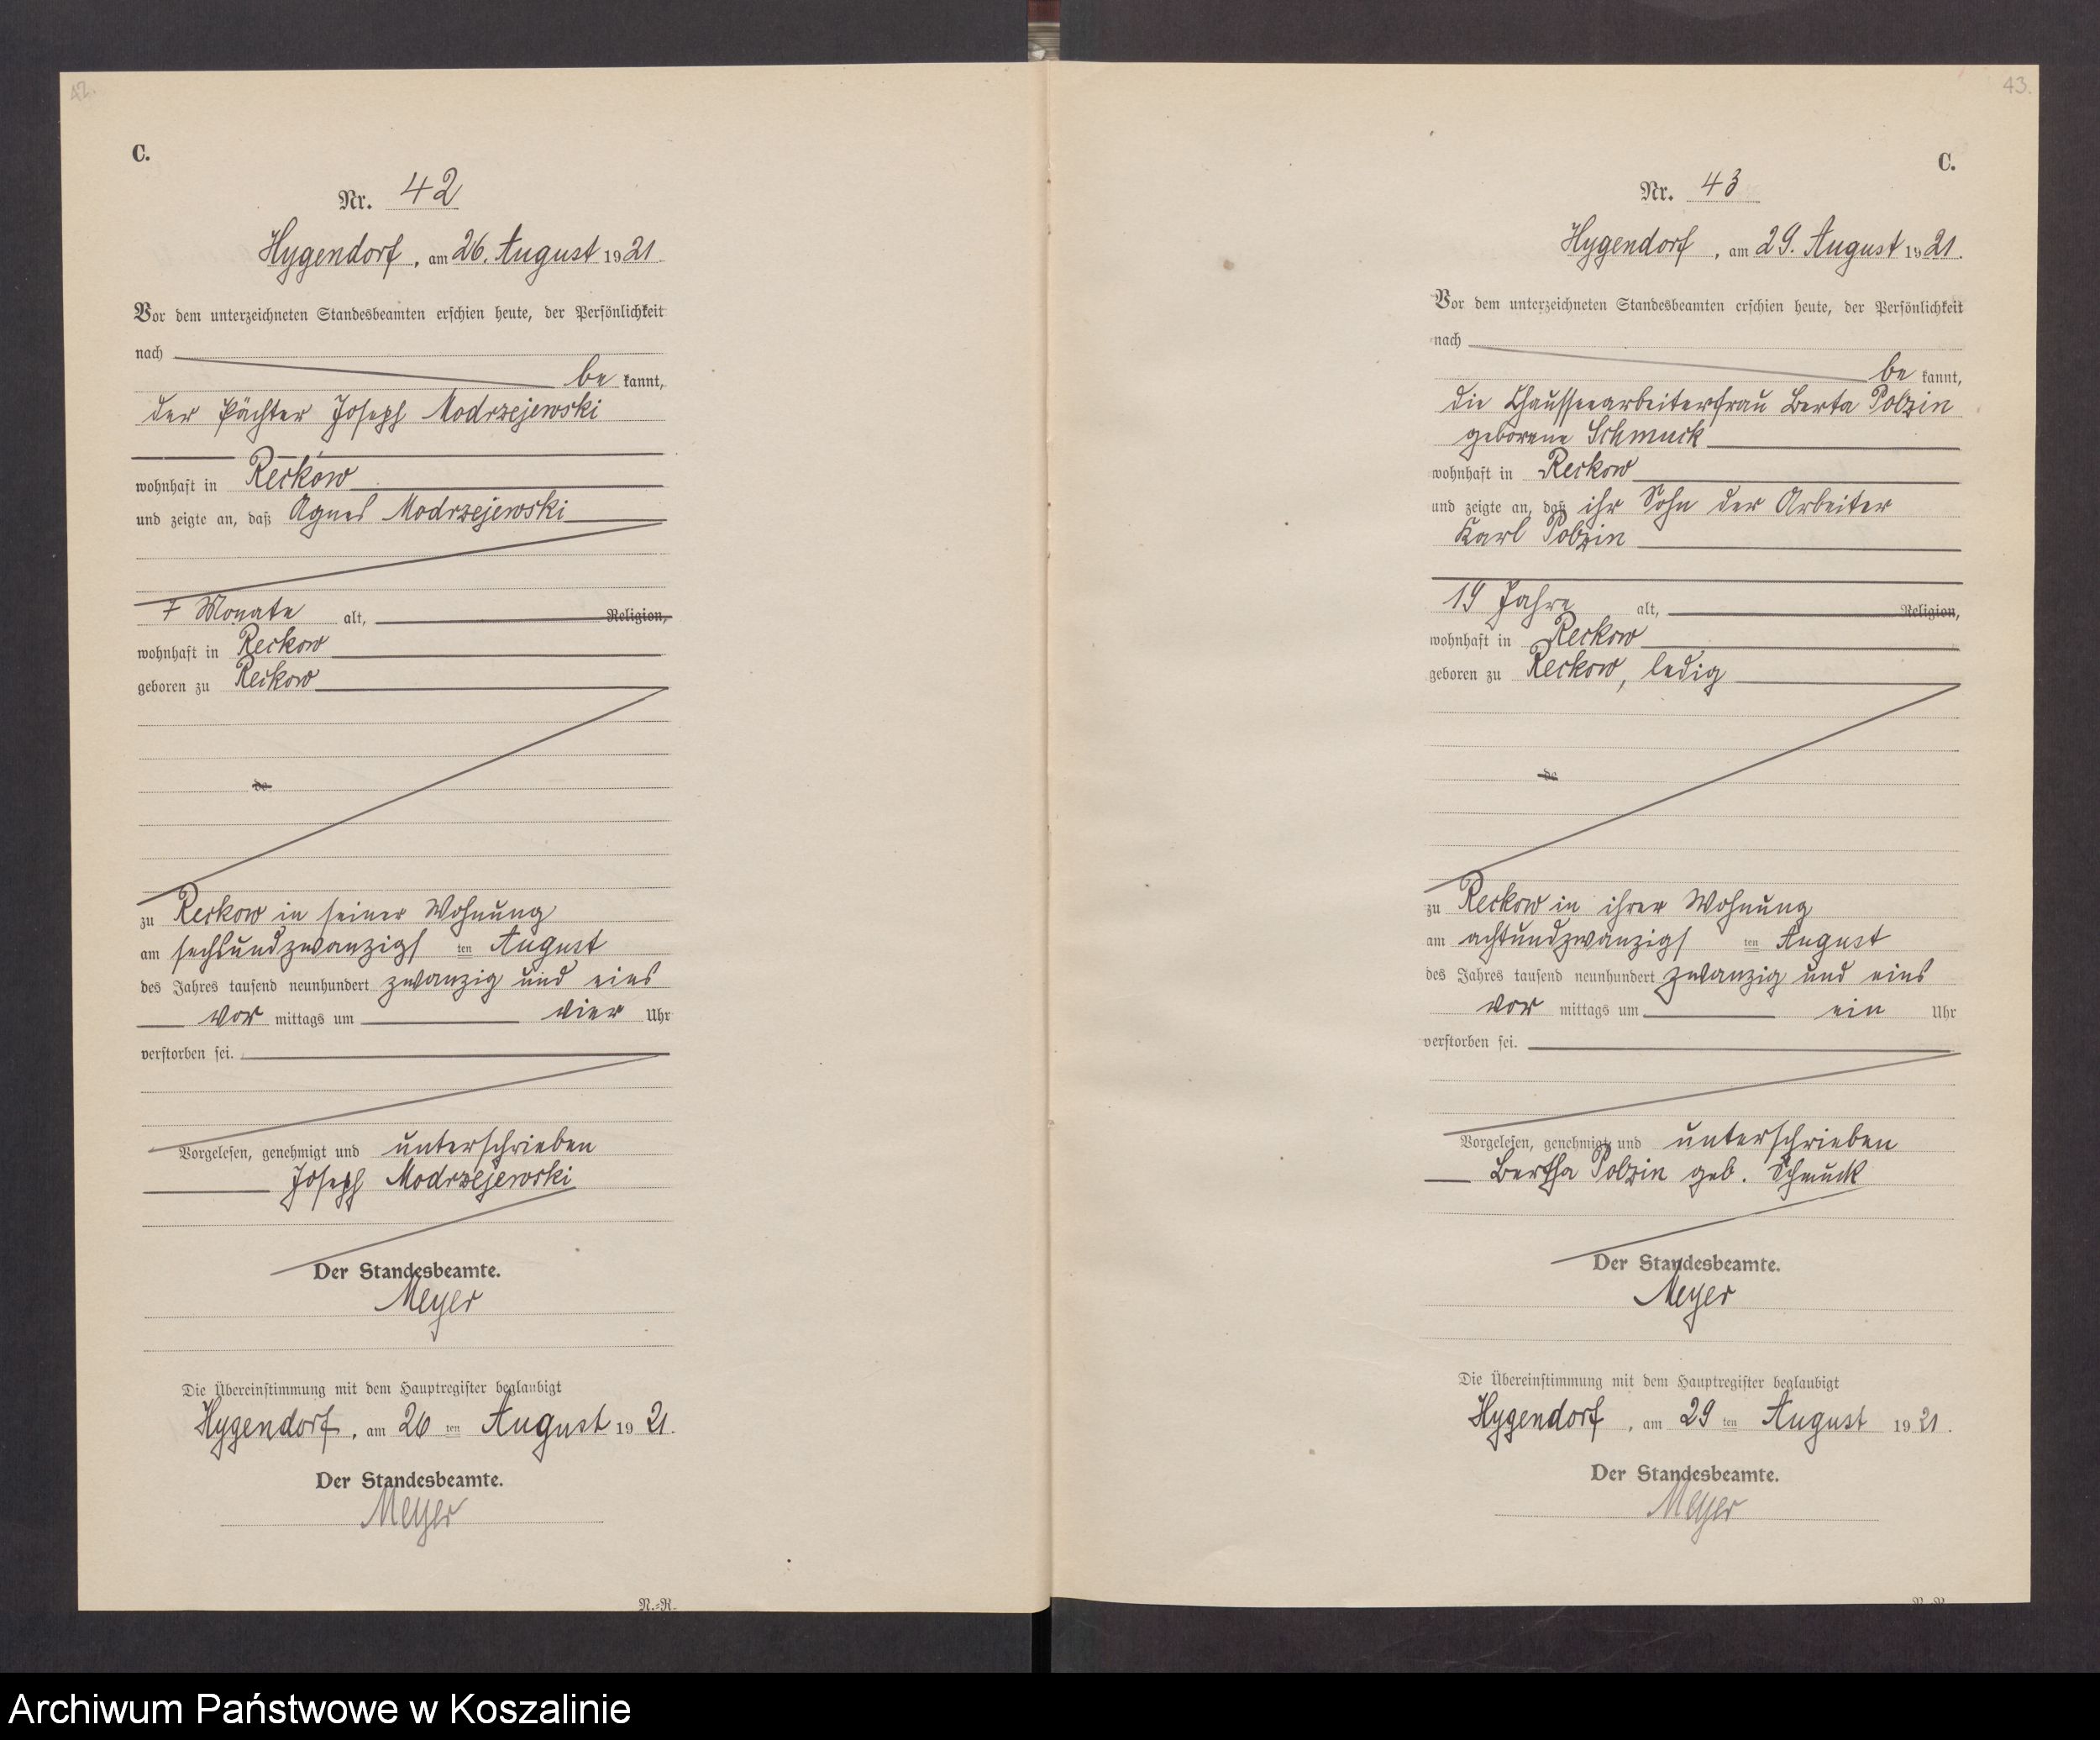 42.
C.
Nr. 42
Hygendorf, am 26. August 1921.
Vor dem unterzeichneten Standesbeamten erschien heute, der Persönlichkeit
nach
be kannt,
der Pächter Joseph Modrzejewski
wohnhaft in Reckow
und zeigte an, daß Agnes Modrzejewski
7 Monate alt, Religion,
wohnhaft in Reckow
geboren zu Reckow
de
zu Reckow in seiner Wohnung
am sechsundzwanzigsten August
des Jahres tausend neunhundert zwanzig und eins
vor mittags um vier Uhr
verstorben sei.
Vorgelesen, genehmigt und unterschrieben
Joseph Modrzejewski
Der Standesbeamte.
Meyer
Die Übereinstimmung mit dem Hauptregister beglaubigt
Hygendorf, am 26 ten August 1921.
Der Standesbeamte.
Meyer
N.=R.
43.
C.
Nr. 43
Hygendorf, am 29. August 1921.
Vor dem unterzeichneten Standesbeamten erschien heute, der Persönlichkeit
nach
be kannt,
die Chausseearbeiterfrau Berta Polzin
geborene Schmuck
wohnhaft in Reckow
und zeigte an, daß ihr Sohn der Arbeiter
Karl Polzin
19 Jahre alt, Religion,
wohnhaft in Reckow
geboren zu Reckow, ledig
de
zu Reckow in ihrer Wohnung
am achtundzwanzigsten August
des Jahres tausend neunhundert zwanzig und eins
vor mittags um ein Uhr
verstorben sei.
Vorgelesen, genehmigt und unterschrieben
Bertha Polzin geb. Schmuck
Der Standesbeamte.
Meyer
Die Übereinstimmung mit dem Hauptregister beglaubigt
Hygendorf, am 29 ten August 1921.
Der Standesbeamte.
Meyer
Archiwum Państwowe w Koszalinie